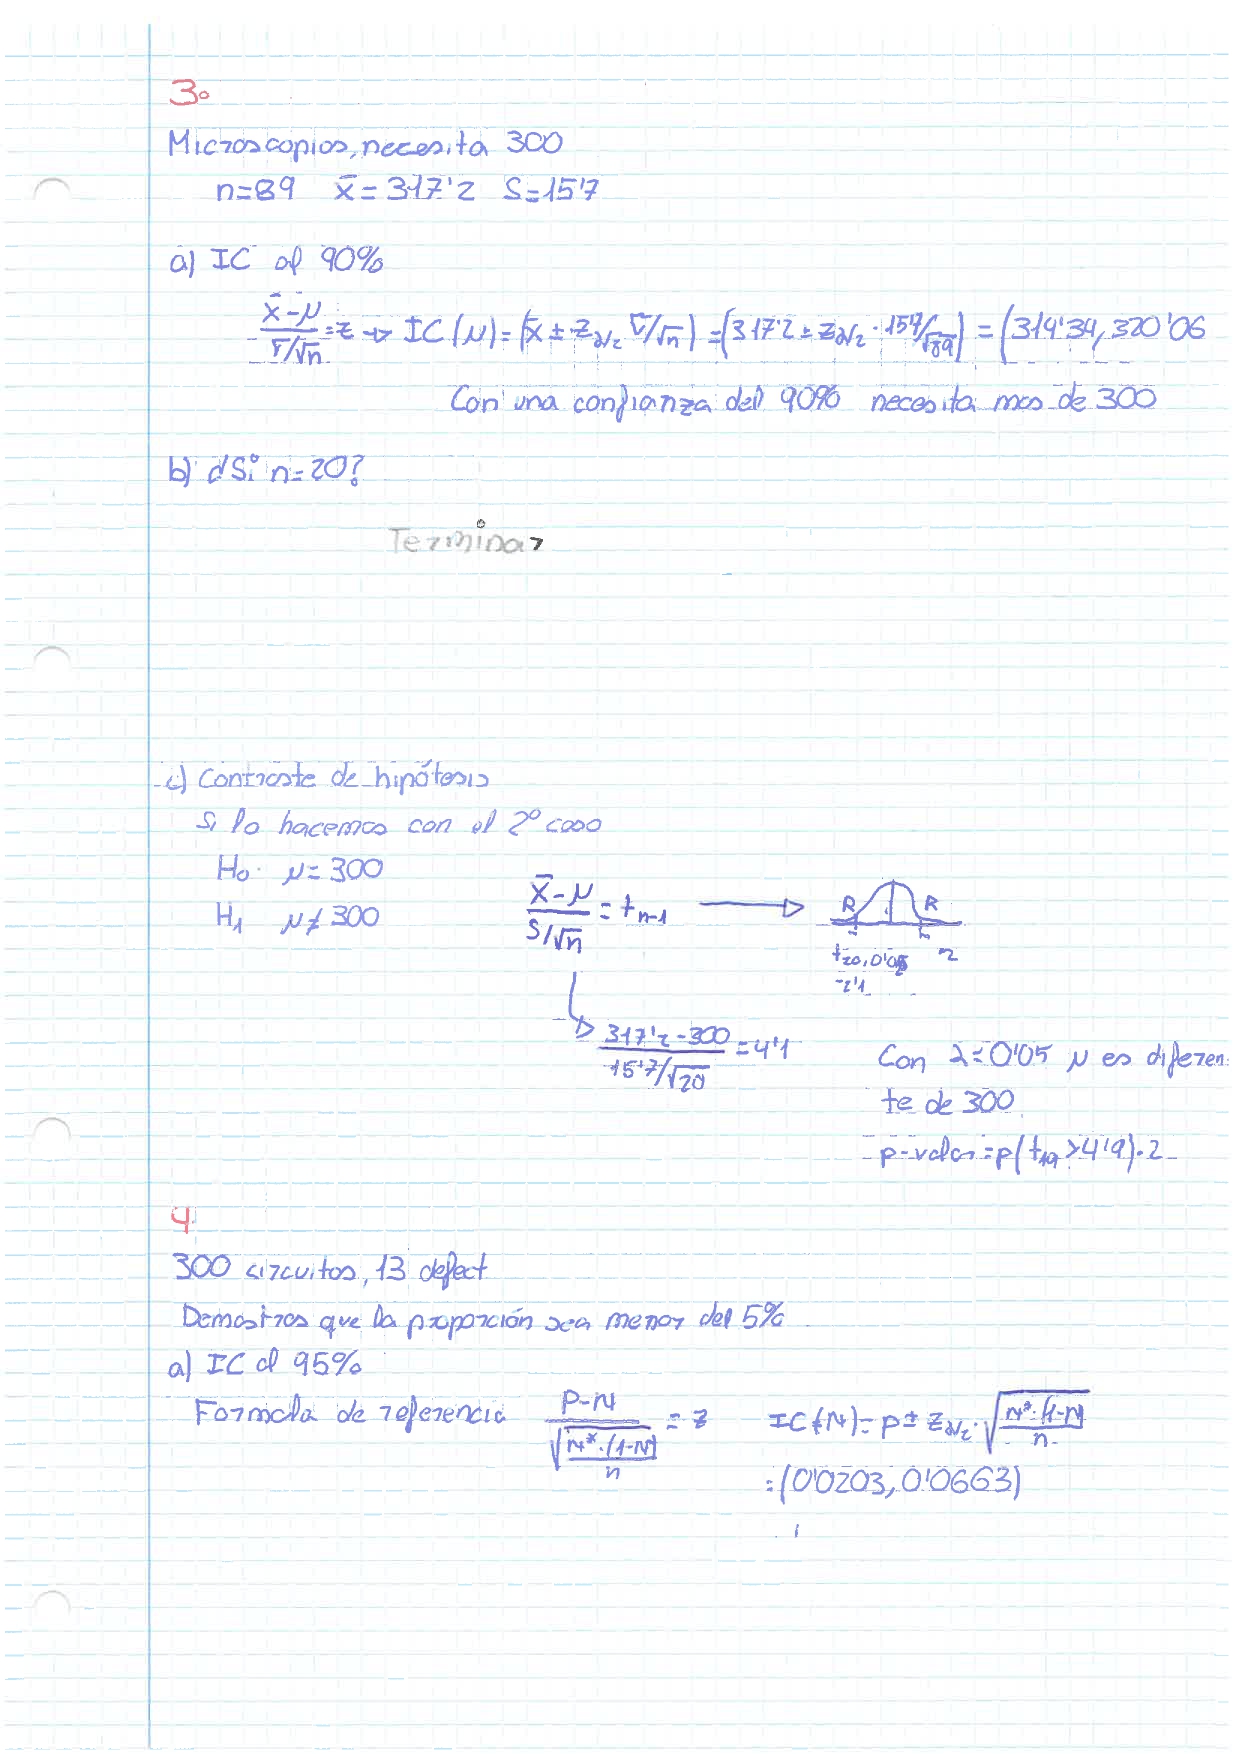 3.
Microscopios, necesita 300
n=89 x̄=317'2 S=15'7
a) IC al 90%
(x̄-μ)/(σ/√n)=z → IC(μ)=(x̄±z_α/2 σ/√n)=(317'2±z_α/2·15'7/√89)=(314'34, 320'06
Con una confianza del 90% necesita mas de 300
b) ¿Si n=20?
Terminar
c) Contraste de hipótesis
Si lo hacemos con el 2º caso
H₀ μ=300
H₁ μ≠300
(x̄-μ)/(S/√n)=t_n-1
R R
t_20,0'05
-2'1
(317'2-300)/(15'7/√20)=4'1
Con α=0'05 μ es diferen
te de 300
p-valor=p(t_19>4'9)·2
4
300 circuitos, 13 defect
Demostros que la proporción sea menor del 5%
a) IC al 95%
Formula de referencia (P-π)/√(π*·(1-π)/n)=z IC(π)=p±z_α/2·√(π*·(1-π)/n)
=(0'0203, 0'0663)